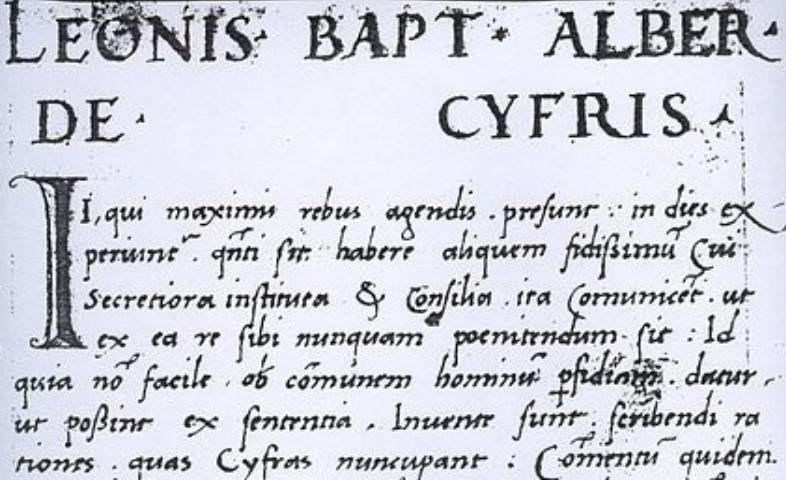 LEONIS· BAPT· ALBER·
DE· CYFRIS·
II, qui maximis rebus agendis. presunt: in dies ex
periunt᷑. qñti sit habere aliquem fidissimū Cui
Secretiora instituta & Consilia. ita Comunicēt. ut
ex ea re sibi nunquam poenitendum sit: Id
quia nō facile. ob cōmunem hominū ꝑfidiam. datur,
ut poßint ex sententia. Inuente sunt. scribendi ra
tiones. quas Cyfras nuncupant: Cōmentū quidem.